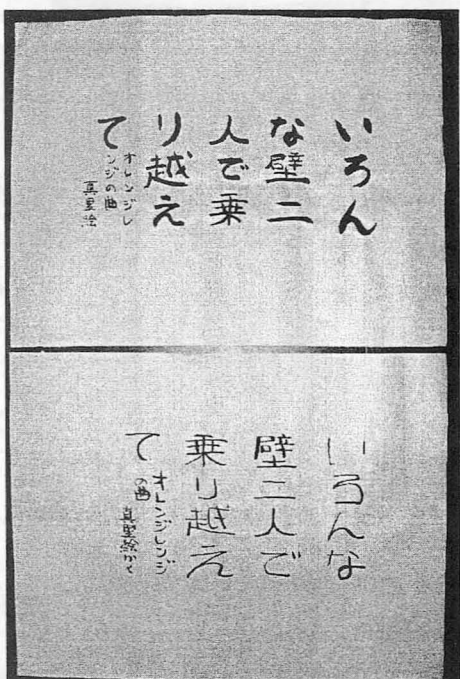 いろん
な壁二
人で乗
り越え
て
オレンジレ
ンジの曲
真里絵
いろんな
壁二人で
乗り越え
て
オレンジレンジ
の曲
真聖絵かく